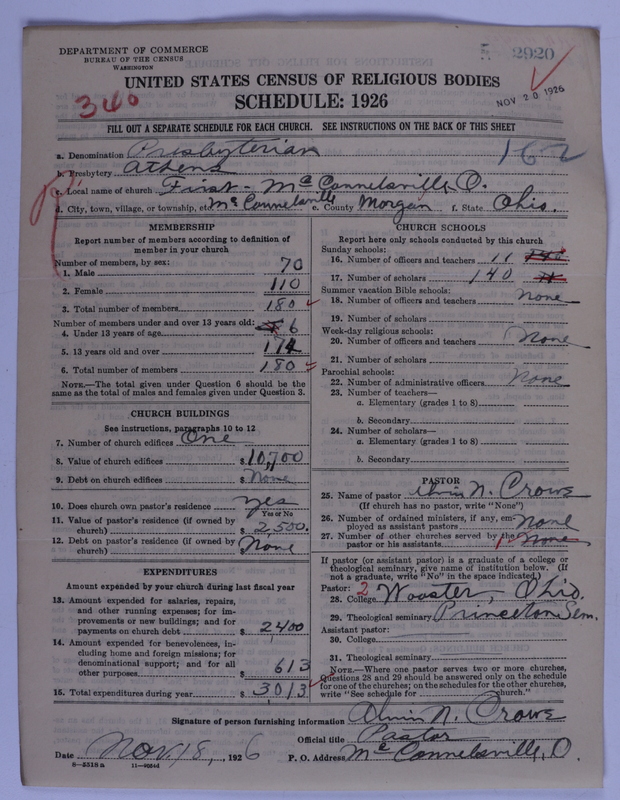 DEPARTMENT OF COMMERCE
BUREAU OF THE CENSUS
WASHINGTON
2920
UNITED STATES CENSUS OF RELIGIOUS BODIES
SCHEDULE: 1926
340
NOV 20 1926
FILL OUT A SEPARATE SCHEDULE FOR EACH CHURCH. SEE INSTRUCTIONS ON THE BACK OF THIS SHEET
a. Denomination Presbyterian
162
b. Presbytery Athens
c. Local name of church First - McConnelsville, O.
d. City, town, village, or township, etc. McConnelsville e. County Morgan f. State Ohio.
MEMBERSHIP
Report number of members according to definition of
member in your church
Number of members, by sex:
1. Male 70
2. Female 110
3. Total number of members 180
Number of members under and over 13 years old:
4. Under 13 years of age 6
5. 13 years old and over 174
6. Total number of members 180
NOTE.—The total given under Question 6 should be the
same as the total of males and females given under Question 3.
CHURCH BUILDINGS
See instructions, paragraphs 10 to 12
7. Number of church edifices One
8. Value of church edifices $ 10,700
9. Debt on church edifices $ None
10. Does church own pastor's residence yes
Yes or No
11. Value of pastor's residence (if owned by
church) $ 2,500.
12. Debt on pastor's residence (if owned by
church) $ None
EXPENDITURES
Amount expended by your church during last fiscal year
13. Amount expended for salaries, repairs,
and other running expenses; for im-
provements or new buildings; and for
payments on church debt $ 2400
14. Amount expended for benevolences, in-
cluding home and foreign missions; for
denominational support; and for all
other purposes $ 613
15. Total expenditures during year $ 3013
CHURCH SCHOOLS
Report here only schools conducted by this church
Sunday schools:
16. Number of officers and teachers 11 140
17. Number of scholars 140 11
Summer vacation Bible schools:
18. Number of officers and teachers None
19. Number of scholars
Week-day religious schools:
20. Number of officers and teachers None
21. Number of scholars
Parochial schools:
22. Number of administrative officers None
23. Number of teachers—
a. Elementary (grades 1 to 8)
b. Secondary
24. Number of scholars—
a. Elementary (grades 1 to 8)
b. Secondary
PASTOR
25. Name of pastor Alvin N. Crowe
(If church has no pastor, write "None")
26. Number of ordained ministers, if any, em-
ployed as assistant pastors None
27. Number of other churches served by the
pastor or his assistants 1 None
If pastor (or assistant pastor) is a graduate of a college or
theological seminary, give name of institution below. (If
not a graduate, write "No" in the space indicated.)
Pastor: 2
28. College Wooster, Ohio.
29. Theological seminary Princeton Sem.
Assistant pastor:
30. College
31. Theological seminary
NOTE.—Where one pastor serves two or more churches,
Questions 28 and 29 should be answered only on the schedule
for one of the churches; on the schedules for the other churches,
write "See schedule for church."
Signature of person furnishing information Alvin N. Crowe
Official title Pastor
Date Nov. 18, 1926 P. O. Address McConnelsville, O.
8—5318a 11—9864d